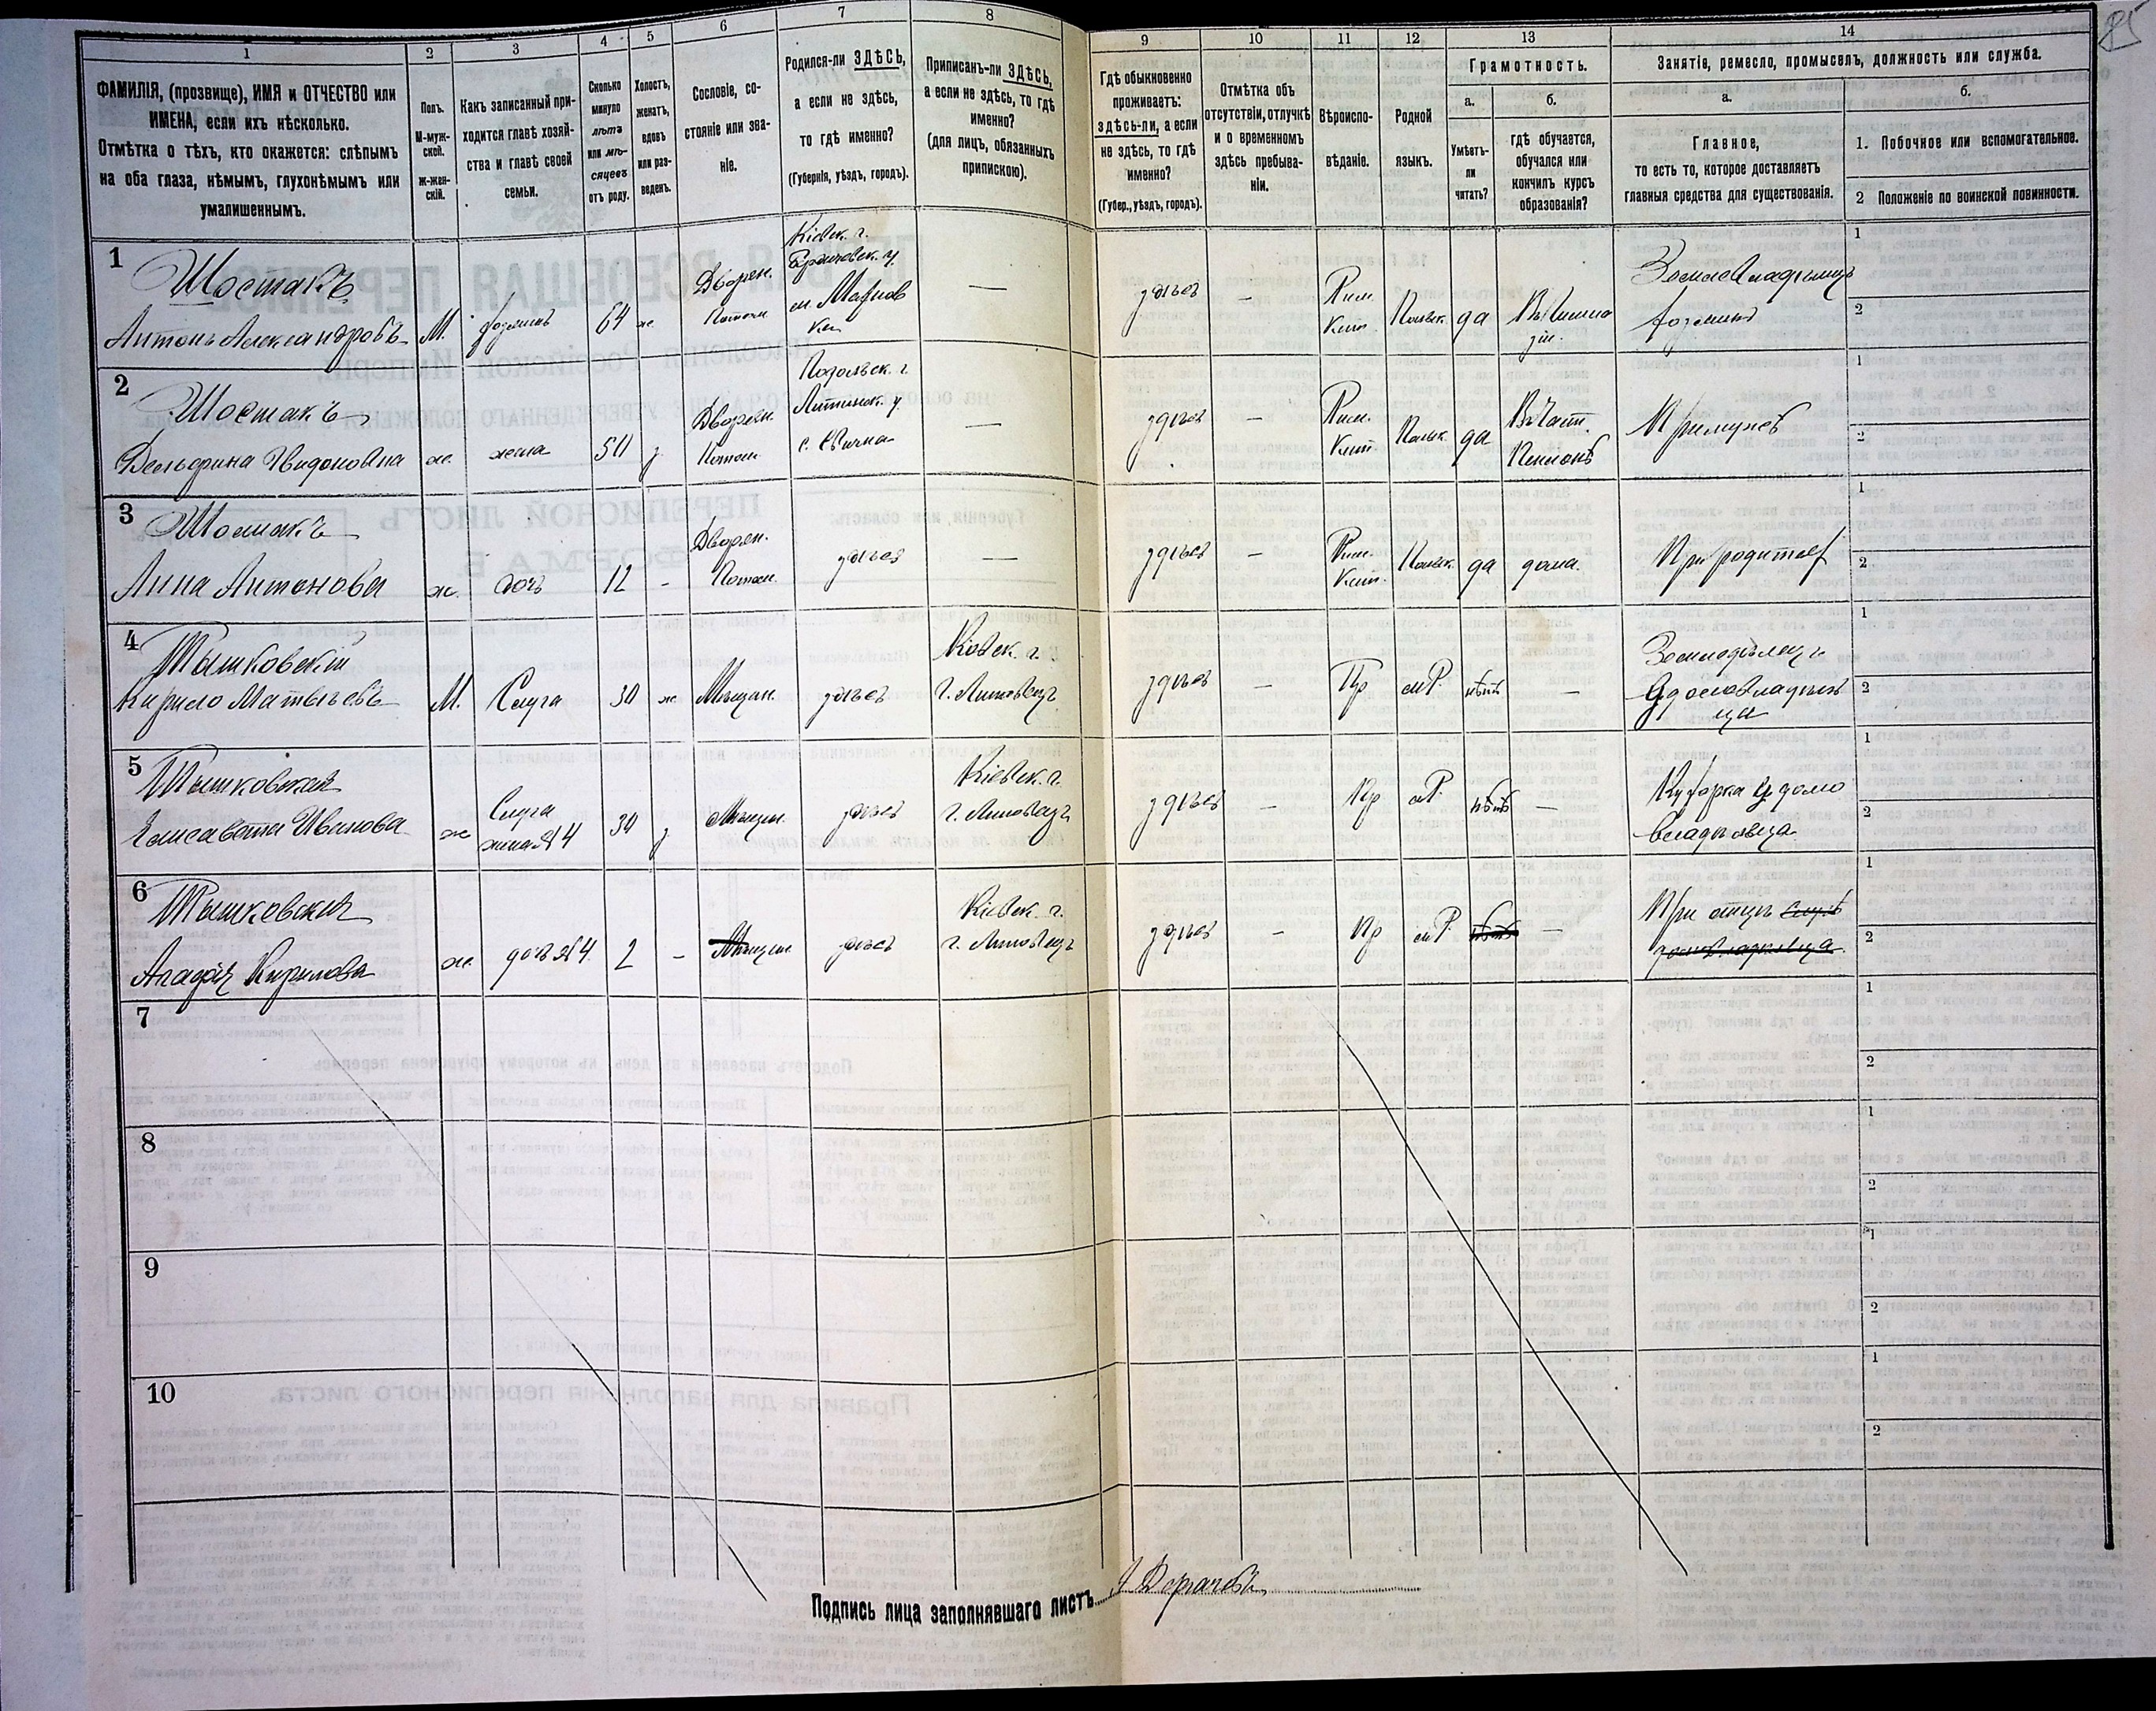 85
1 2 3 4 5 6 7 8 9 10 11 12 13 14
ФАМИЛІЯ, (прозвище), ИМЯ и ОТЧЕСТВО или
ИМЕНА, если ихъ нѣсколько.
Отмѣтка о тѣхъ, кто окажется: слѣпымъ
на оба глаза, нѣмымъ, глухонѣмымъ или
умалишеннымъ.
Полъ.
М-муж-
ской.
Ж-жен-
скій.
Какъ записанный при-
ходится главѣ хозяй-
ства и главѣ своей
семьи.
Сколько
минуло
лѣтъ
или мѣ-
сяцевъ
отъ роду.
Холостъ,
женатъ,
вдовъ
или раз-
веденъ.
Сословіе, со-
стояніе или зва-
ніе.
Родился-ли ЗДѢСЬ,
а если не здѣсь,
то гдѣ именно?
(Губернія, уѣздъ, городъ).
Приписанъ-ли ЗДѢСЬ,
а если не здѣсь, то гдѣ
именно?
(для лицъ, обязанныхъ
припискою).
Гдѣ обыкновенно
проживаетъ:
здѣсь-ли, а если
не здѣсь, то гдѣ
именно?
(Губер., уѣздъ, городъ).
Отмѣтка объ
отсутствіи, отлучкѣ
и о временномъ
здѣсь пребыва-
ніи.
Вѣроиспо-
вѣданіе.
Родной
языкъ.
Грамотность.
а.
Умѣетъ-
ли
читать?
б.
гдѣ обучается,
обучался или
кончилъ курсъ
образованія?
Занятіе, ремесло, промыселъ, должность или служба.
а.
Главное,
то есть то, которое доставляетъ
главныя средства для существованія.
б.
1. Побочное или вспомогательное.
2 Положеніе по воинской повинности.
1
Шостакъ
Антонъ Александровъ
М.
хозяинъ
64
ж
Дворян.
Потом.
Кіевск. г.
м. Махнов
ка
—
здѣсь
—
Рим.
Кат.
Польск.
да
Земле Владѣлецъ
хозяинъ
1
2
2
Шостакъ
ж.
жена
з
Дворян.
Потом.
Подольск. г.
Литинск. у.
—
здѣсь
—
Рим.
Кат.
Польск.
да
Въ Част.
Пенсіонѣ
При мужѣ
1
2
3
Шостакъ
Анна Антонова
ж.
дочь
12
-
Дворян.
Потом.
здѣсь
—
здѣсь
—
Рим.
Кат.
Польск.
да
дома.
При родител
1
2
4
Тышковскій
Кирило Матвѣевъ
М.
Слуга
ж
Мѣщан.
здѣсь
Кіевск. г.
г. Липовецъ
здѣсь
—
Пр
мР.
нѣтъ
—
1
2
5
Тышковская
Елисавета Иванова
ж
Слуга
жена №4
з
Мѣщан.
здѣсь
Кіевск. г.
г. Липовецъ
здѣсь
—
Пр
мР.
нѣтъ
—
Кухарка у домо
владѣльца
1
2
6
Тышковская
Агафія Кирилова
ж.
дочь №4.
2
-
Мѣщан.
здѣсь
Кіевск. г.
г. Липовецъ
здѣсь
-
Пр
мР.
нѣтъ
—
При отцѣ
домовладѣльца
1
2
7
1
2
8
1
2
9
1
2
10
1
2
Подпись лица заполнявшаго листъ